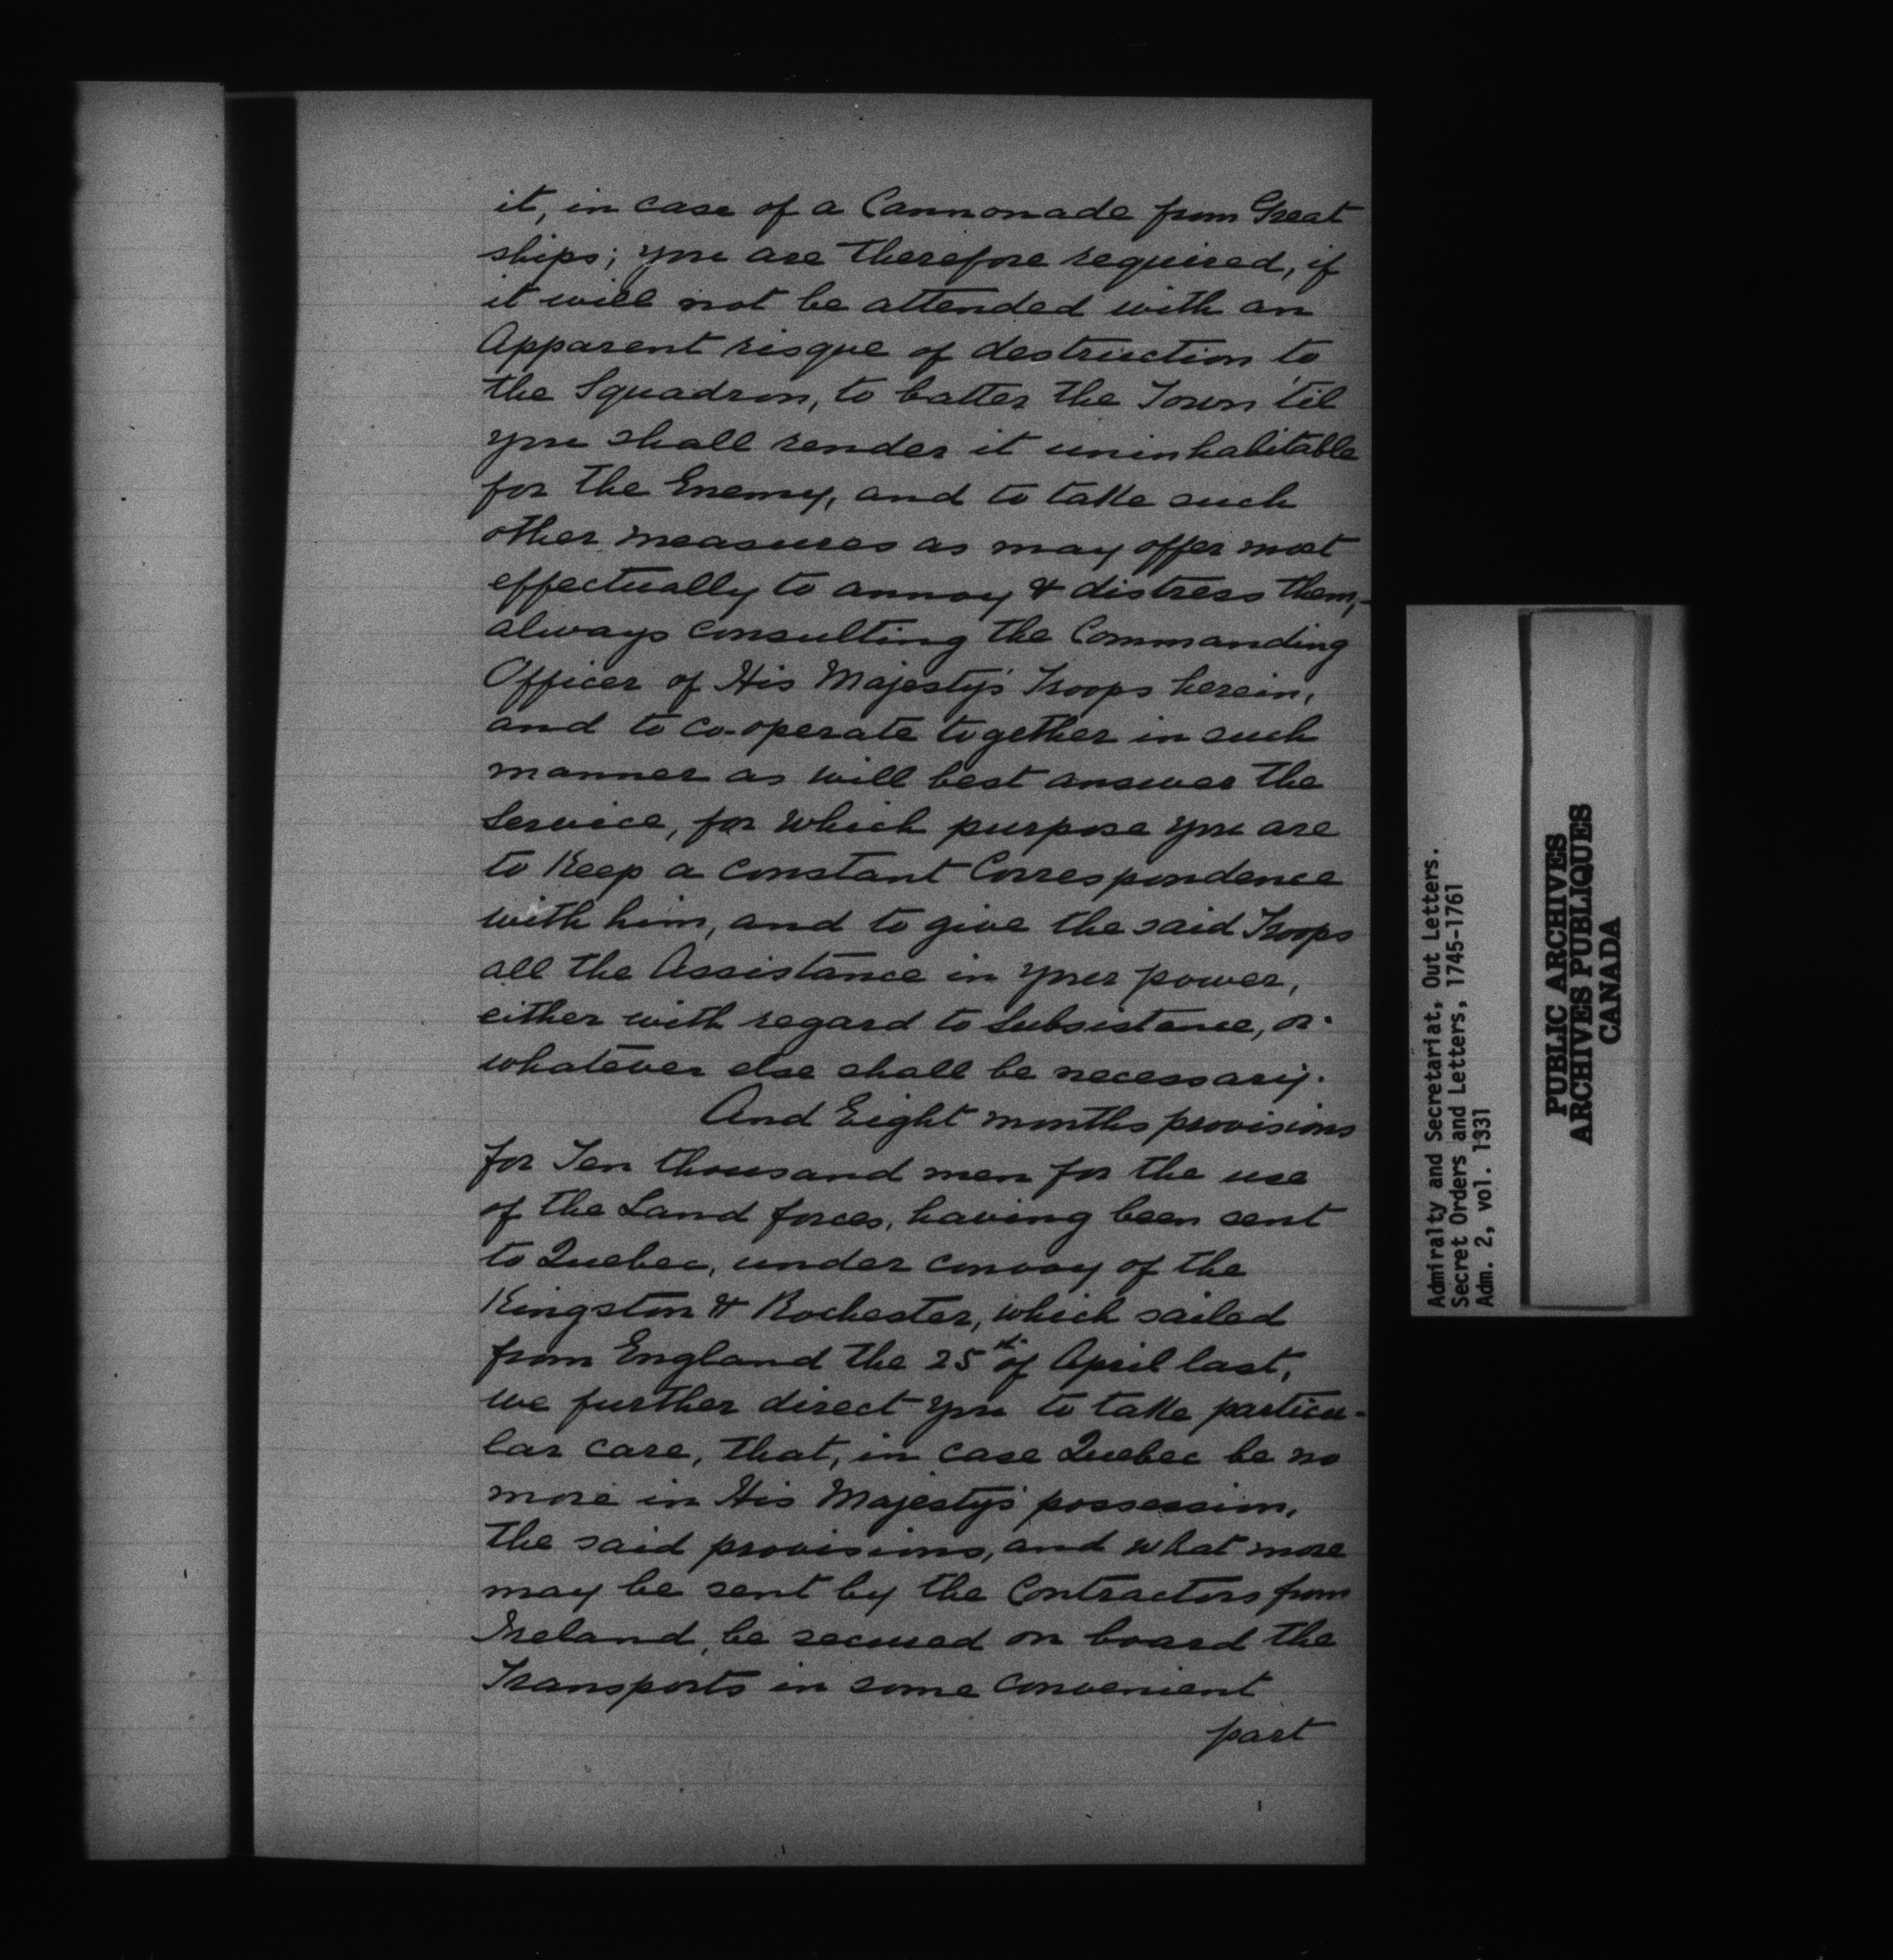 it, in case of a Cannonade from Great
ships; you are therefore required, if
it will not be attended with an
Apparent risque of destruction to
the Squadron, to batter the Town 'til
you shall render it uninhabitable
for the Enemy, and to take such
other measures as may offer most
effectually to annoy & distress them,-
always consulting the Commanding
Officer of His Majesty's Troops herein,
and to co-operate together in such
manner as will best answer the
Service, for which purpose you are
to keep a constant Correspondence
with him, and to give the said Troops
all the Assistance in your power,
either with regard to Subsistance, or
whatever else shall be necessary.
And Eight months provisions
for Ten thousand men for the use
of the Land forces, having been sent
to Quebec, under convoy of the
Kingston & Rochester, which sailed
from England the 25th of April last,
we further direct you to take particu-
lar care, that, in case Quebec be no
more in His Majesty's possession,
the said provisions, and what more
may be sent by the Contractors from
Ireland, be secured on board the
Transports in some convenient
part
Admiralty and Secretariat, Out Letters.
Secret Orders and Letters, 1745-1761
Adm. 2, vol. 1331
PUBLIC ARCHIVES
ARCHIVES PUBLIQUES
CANADA